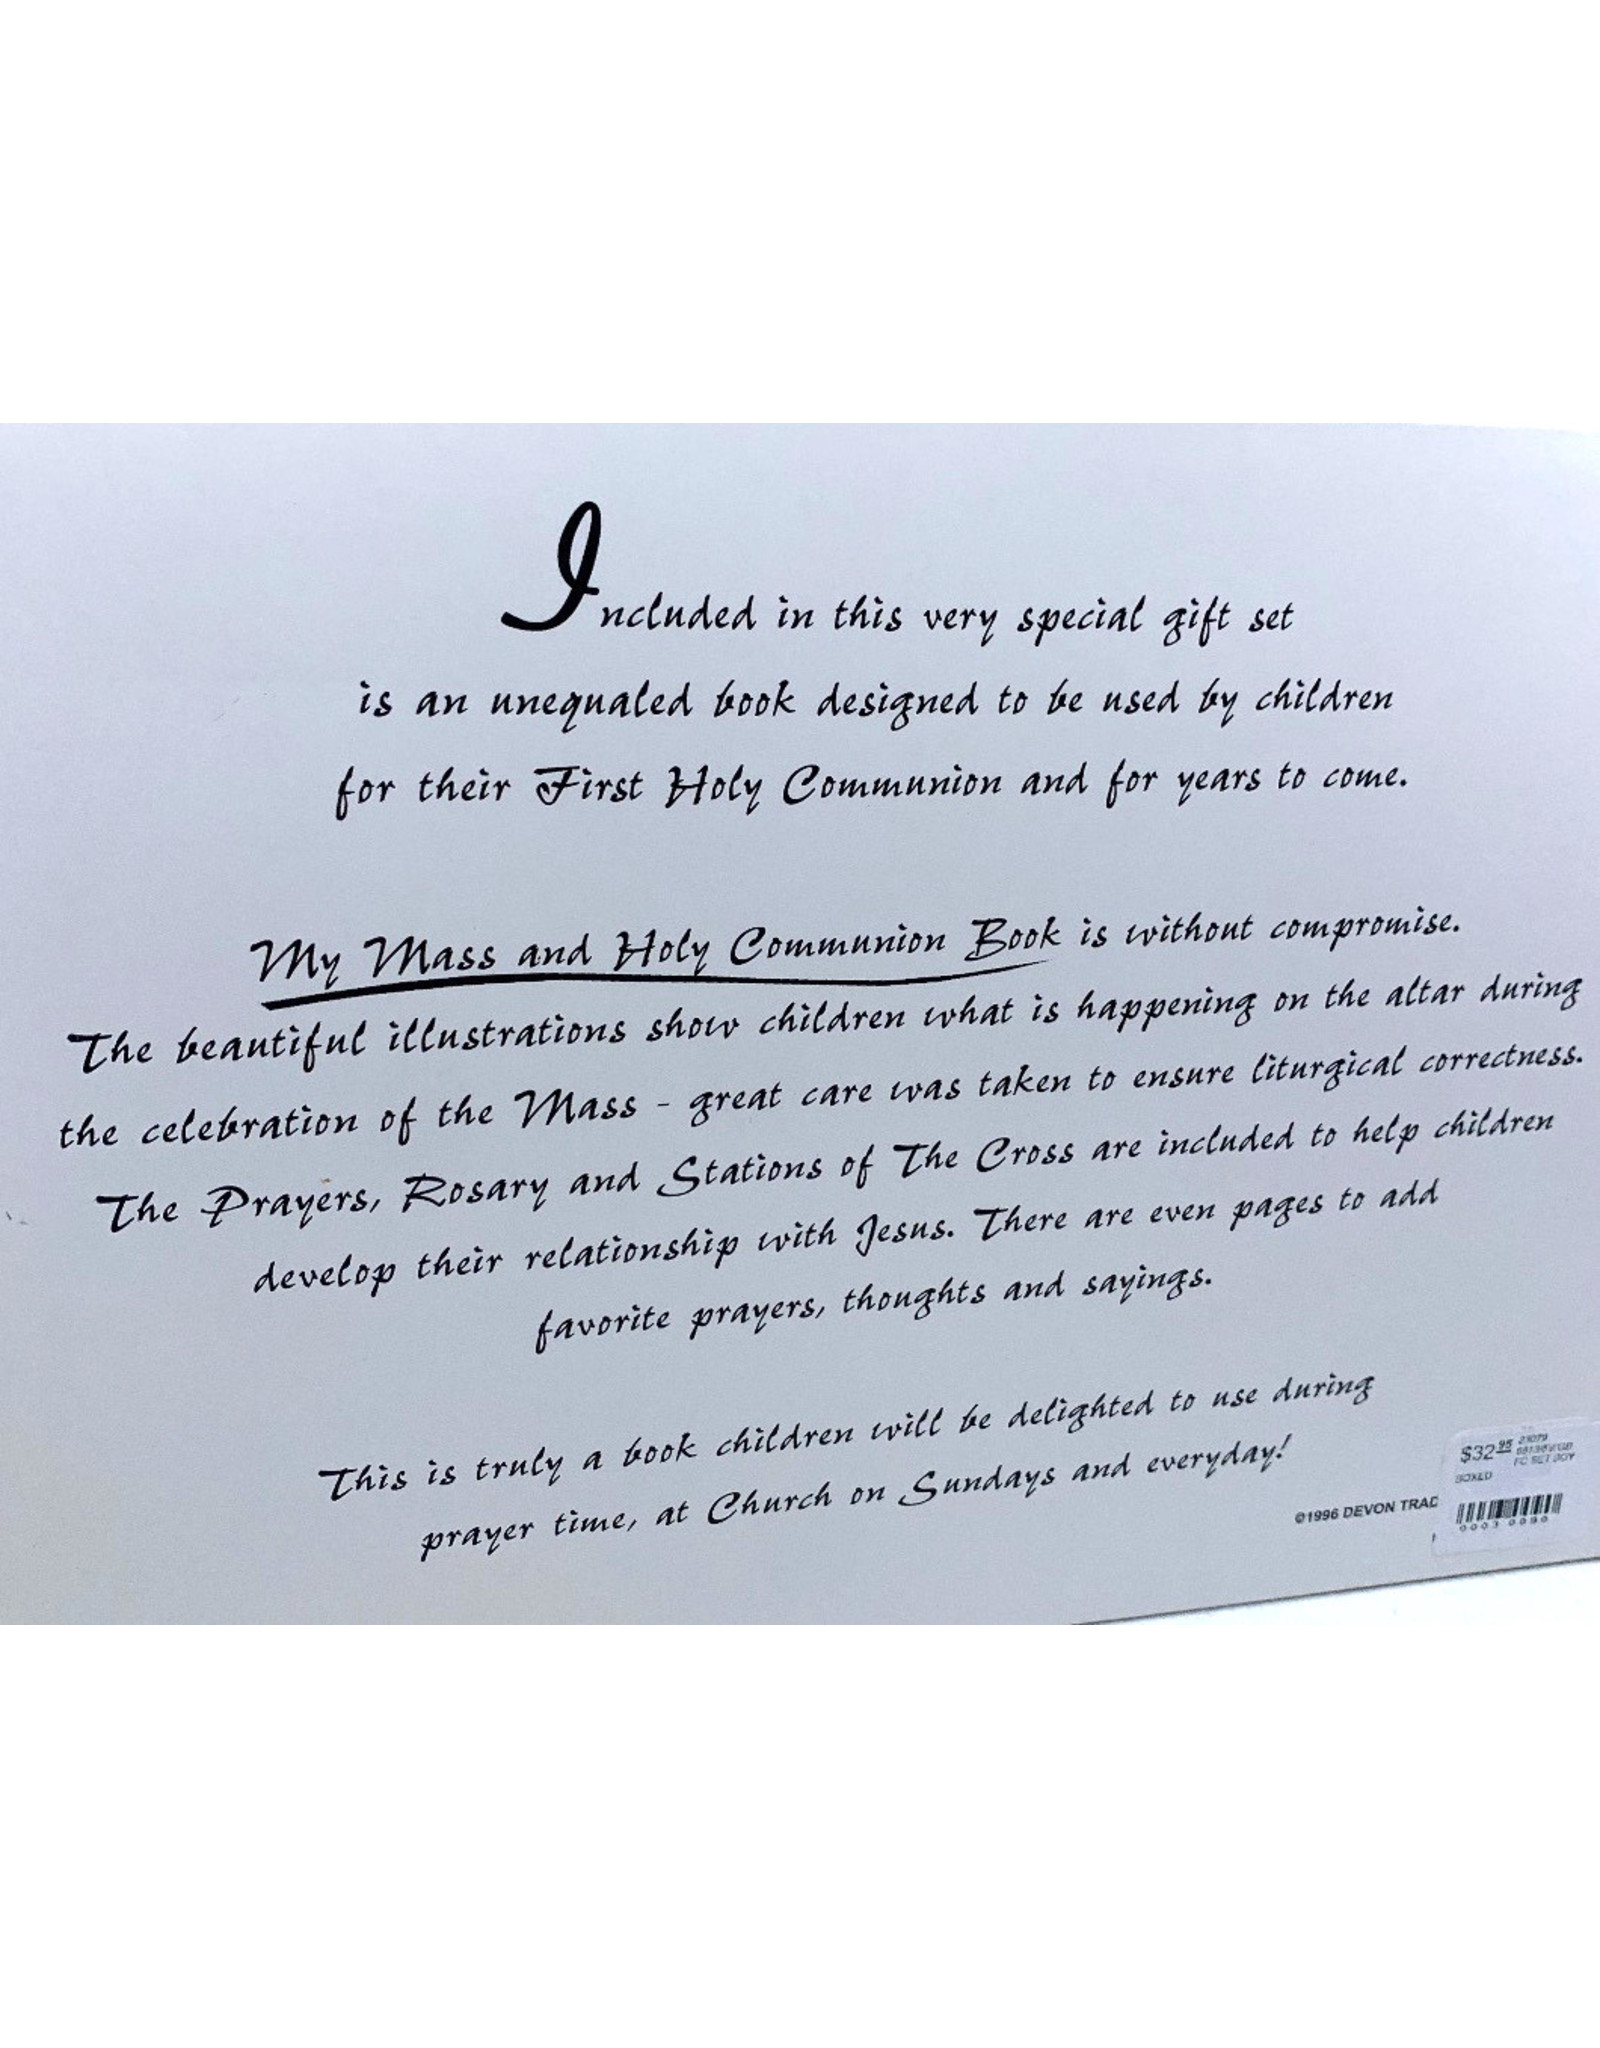 Included in this very special gift set
is an unequaled book designed to be used by children
for their First Holy Communion and for years to come.
My Mass and Holy Communion Book is without compromise.
The beautiful illustrations show children what is happening on the altar during
the celebration of the Mass - great care was taken to ensure liturgical correctness.
The Prayers, Rosary and Stations of The Cross are included to help children
develop their relationship with Jesus. There are even pages to add
favorite prayers, thoughts and sayings.
This is truly a book children will be delighted to use during
prayer time, at Church on Sundays and everyday!
©1996 DEVON TRAD
$32.95
FC SET BOY
BOXED